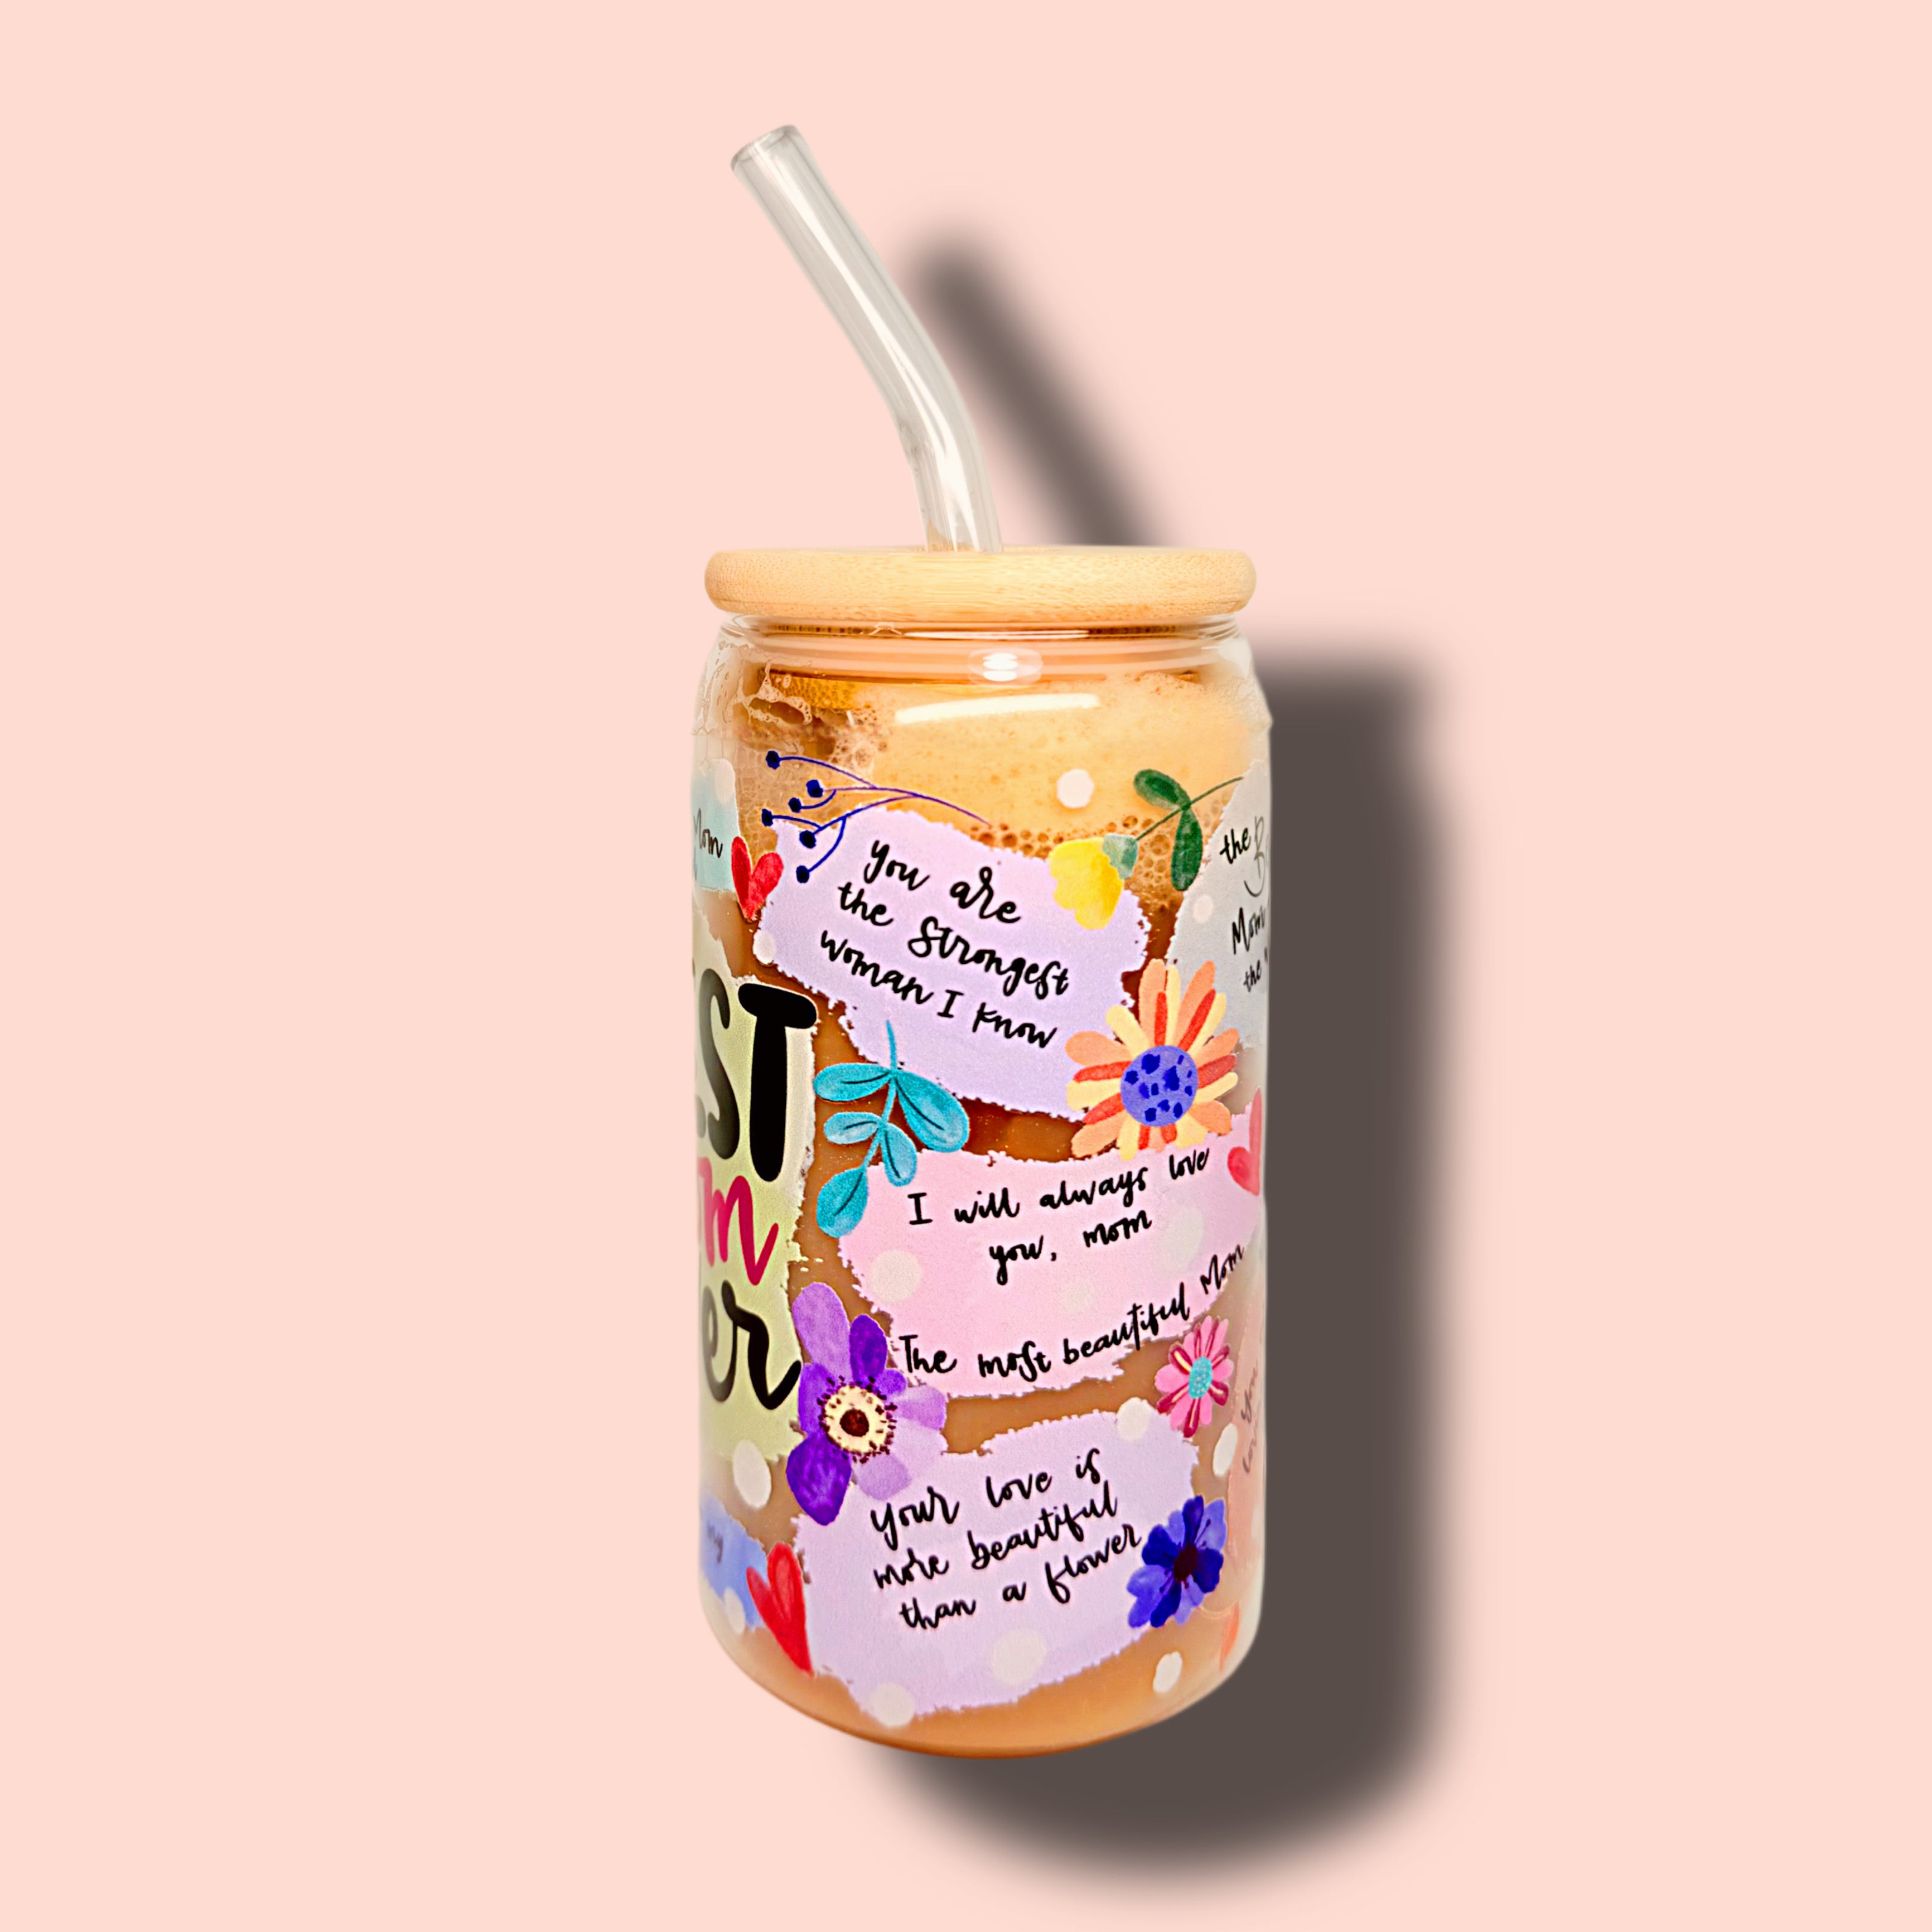 Mom
you are
the strongest
woman I know
the
Mom
the
I will always love
you, mom
The most beautiful Mom
Your love is
more beautiful
than a flower
my
You